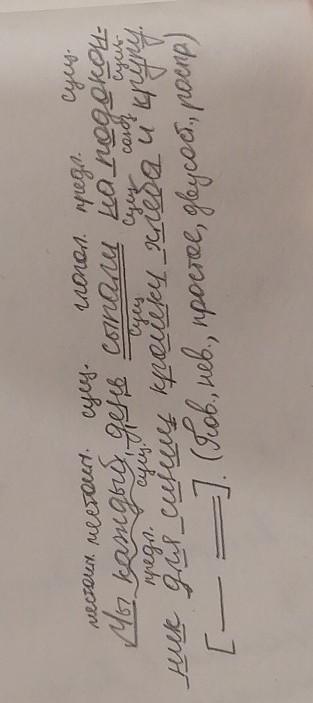 местоим. местоим. сущ. глагол. предл. сущ.
Мы каждый день сыпали на подокон-
предл. сущ. сущ. сущ. союз сущ.
ник для синиц крошку хлеба и крупу.
[— =]. (Пов., нев., простое, двусост., распр)